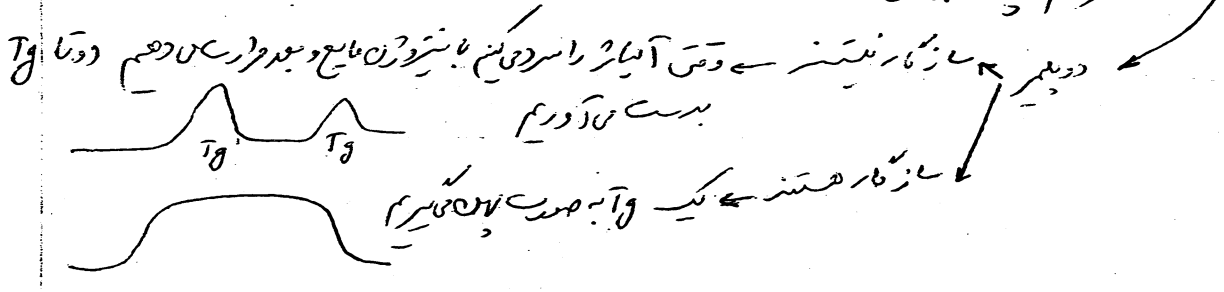 دو پلیمر ← سازگار نیستند ← وقتی آلیاژ را سرد می‌کنیم با نیتروژن مایع و بعد حرارت می‌دهیم دوتا Tg
بدست می‌آوریم
Tg Tg
سازگار هستند ← یک Tg به صورت پهن می‌گیریم